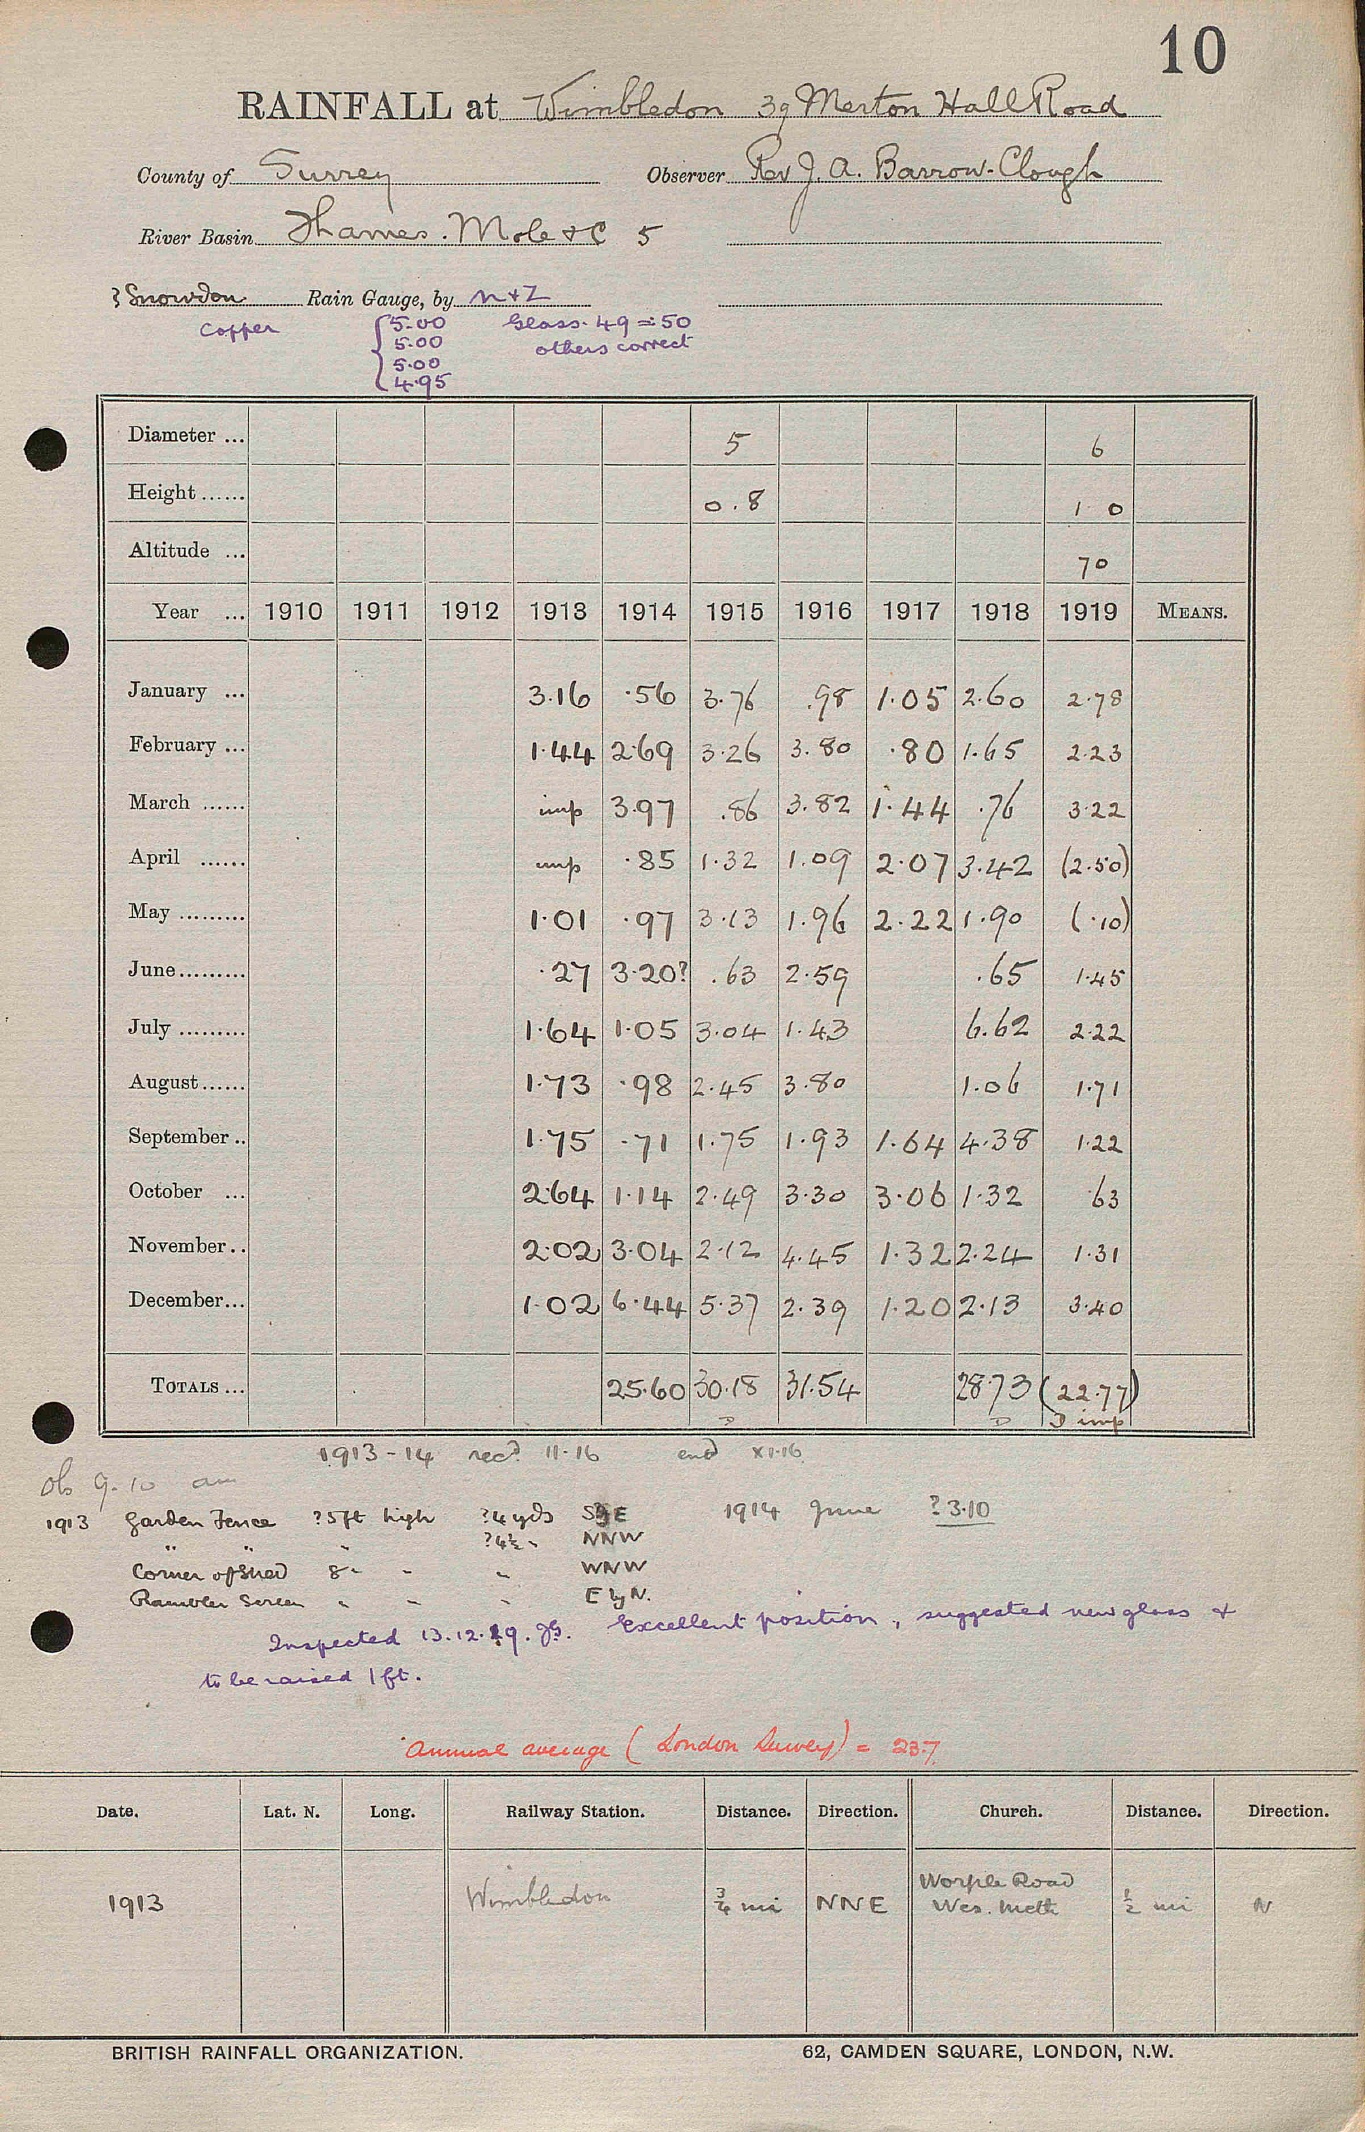 10
RAINFALL at Wimbledon 39 Merton Hall Road
County of Surrey Observer Rev J. A. Barrow-Clough
River Basin Thames. Mole & C 5
? Snowdon Rain Gauge, by N+Z
Copper 5.00 Glass .49 = .50
5.00 others correct
5.00
4.95
Diameter ... 5 6
Height ...... 0.8 1 0
Altitude ... 70
Year ... 1910 1911 1912 1913 1914 1915 1916 1917 1918 1919 MEANS.
January ... 3.16 .56 3.76 .98 1.05 2.60 2.78
February ... 1.44 2.69 3.26 3.80 .80 1.65 2.23
March ...... imp 3.97 .86 3.82 1.44 .76 3.22
April ...... imp .85 1.32 1.09 2.07 3.42 (2.50)
May ......... 1.01 .97 3.13 1.96 2.22 1.90 (.10)
June......... .27 3.20? .63 2.59 .65 1.45
July ......... 1.64 1.05 3.04 1.43 6.62 2.22
August...... 1.73 .98 2.45 3.80 1.06 1.71
September .. 1.75 .71 1.75 1.93 1.64 4.38 1.22
October ... 2.64 1.14 2.49 3.30 3.06 1.32 .63
November.. 2.02 3.04 2.12 4.45 1.32 2.24 1.31
December... 1.02 6.44 5.37 2.39 1.20 2.13 3.40
TOTALS ... 25.60 30.18 31.54 28.73 (22.77)
D D D imp
1913-14 recd 11.16 end XI.16
Ob 9.10 am
1913 Garden Fence ?5ft high ?4 yds SE 1914 June ?3.10
" " " ?4½ " NNW
Corner of Shed 8 " " " WNW
Rambler Screen " " " E by N.
Inspected 13.12.19. Excellent position, suggested new glass &
to be raised 1 ft.
Annual average (London Survey) = 23.7
Date. Lat. N. Long. Railway Station. Distance. Direction. Church. Distance. Direction.
1913 Wimbledon ¾ mi NNE Worple Road Wes. Meth ½ mi N
BRITISH RAINFALL ORGANIZATION. 62, CAMDEN SQUARE, LONDON, N.W.